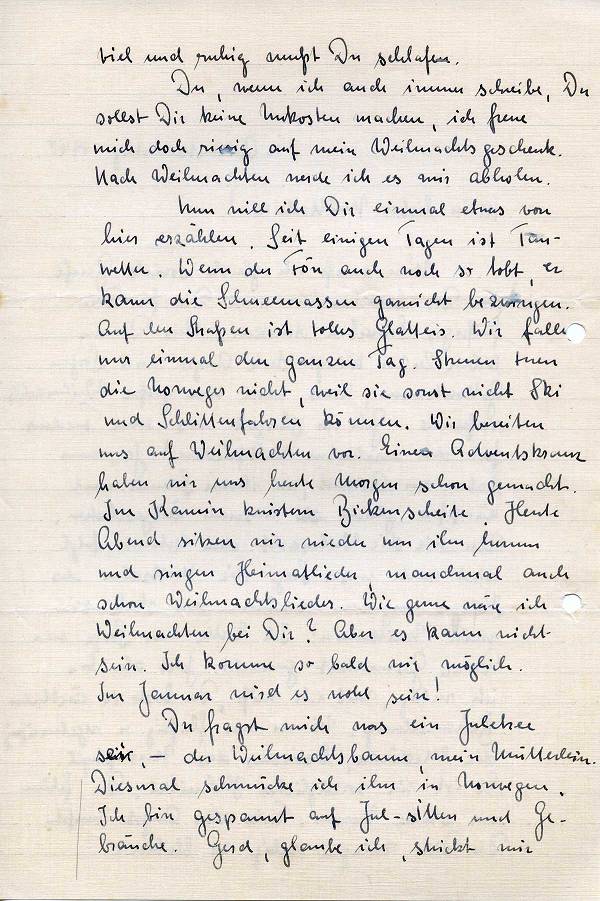 viel und ruhig mußt Du schlafen.
Du, wenn ich auch immer schreibe, Du
sollst Dir keine Unkosten machen, ich freue
mich doch riesig auf mein Weihnachtsgeschenk.
Nach Weihnachten werde ich es mir abholen.
Nun will ich Dir einmal etwas von
hier erzählen. Seit einigen Tagen ist Tau-
wetter. Wenn der Fön auch noch so tobt, er
kann die Schneemassen garnicht bezwingen.
Auf den Straßen ist tolles Glatteis. Wir fallen
nur einmal den ganzen Tag. Streuen tuen
die Norweger nicht, weil sie sonst nicht Ski
und Schlittenfahren können. Wir bereiten
uns auf Weihnachten vor. Einen Adventskranz
haben wir uns heute Morgen schon gemacht.
Im Kamin knistern Birkenscheite. Heute
Abend sitzen wir wieder um ihn herum
und singen Heimatlieder, manchmal auch
schon Weihnachtslieder. Wie gerne wäre ich
Weihnachten bei Dir? Aber es kann nicht
sein. Ich komme so bald wie möglich.
Im Januar wird es wohl sein!
Du fragst mich was ein Juletree
sei, – der Weihnachtsbaum, mein Mütterlein.
Diesmal schmücke ich ihn in Norwegen.
Ich bin gespannt auf Jul-sitten und Ge-
bräuche. Gerd, glaube ich, schickt mir